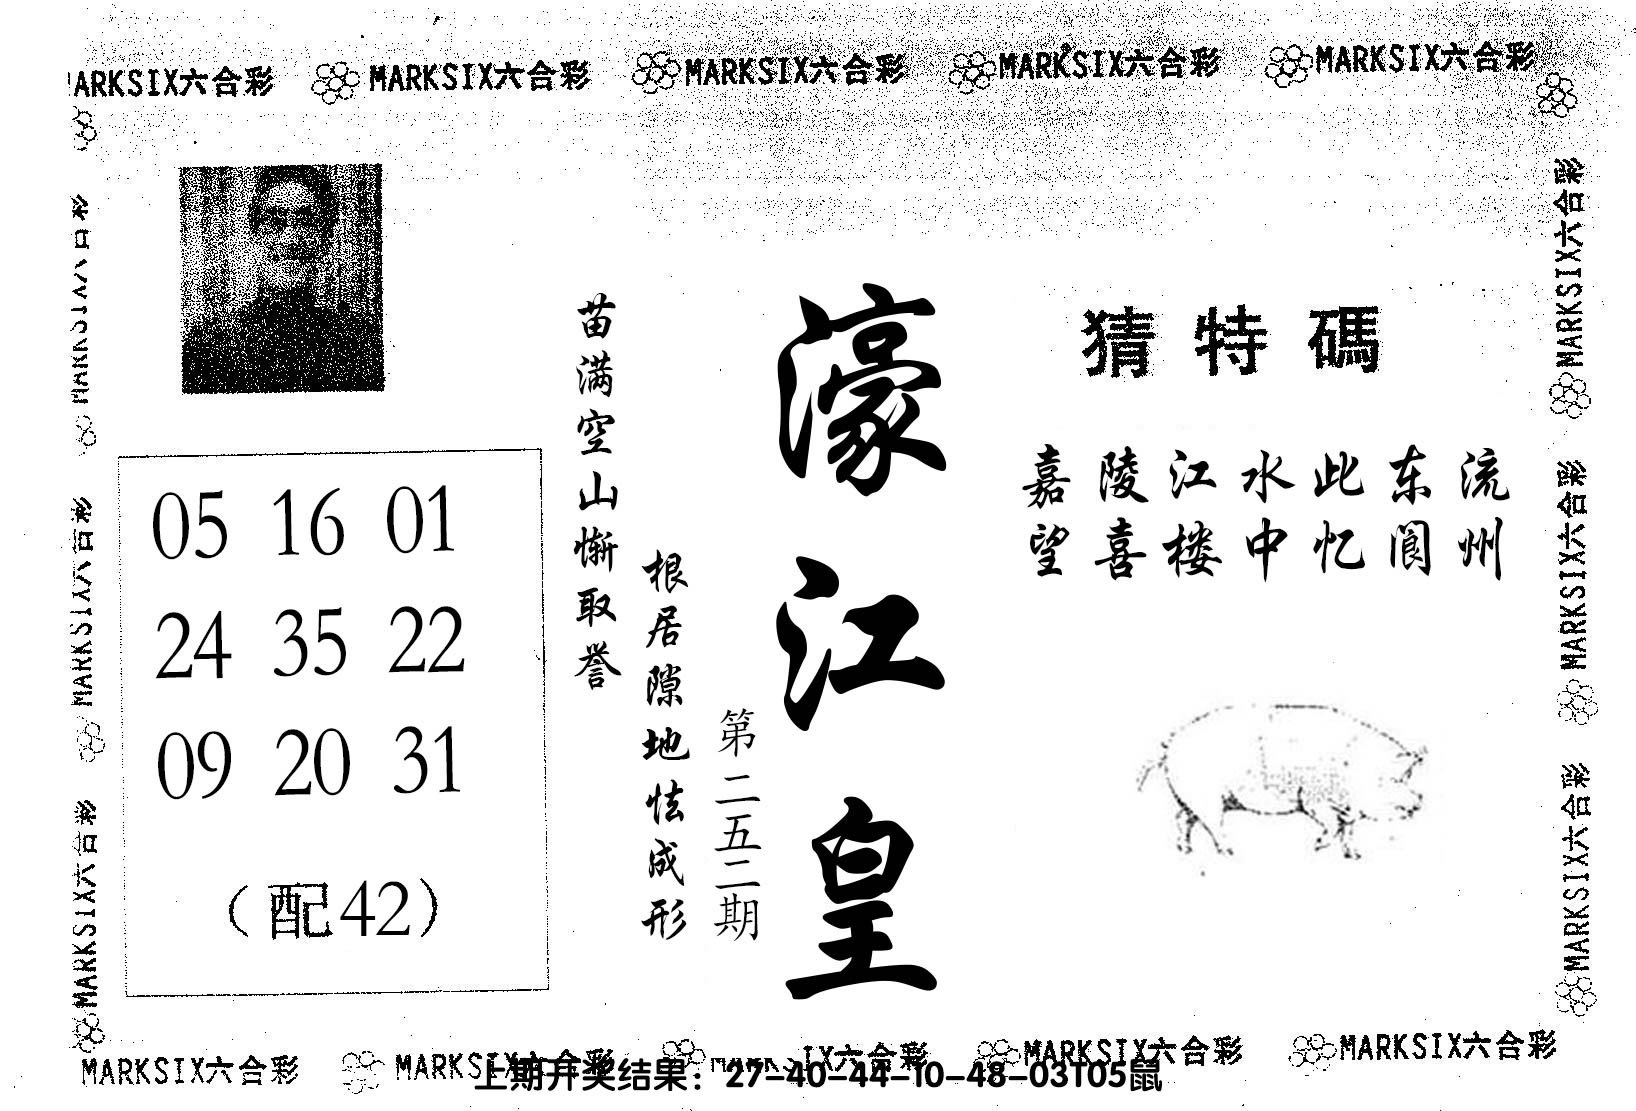 MARKSIX六合彩 MARKSIX六合彩 MARKSIX六合彩 MARKSIX六合彩 MARKSIX六合彩
MARKSIX六合彩
MARKSIX六合彩
MARKSIX六合彩
05 16 01
24 35 22
09 20 31
（配42）
苗满空山惭取誉
根居隙地怯成形
第二五二期
濠江皇
猜特碼
嘉陵江水此东流
望喜楼中忆阆州
MARKSIX六合彩
MARKSIX六合彩
MARKSIX六合彩
MARKSIX六合彩 MARKSIX六合彩 MARKSIX六合彩 MARKSIX六合彩 MARKSIX六合彩
上期开奖结果：27-40-44-10-48-03T05鼠